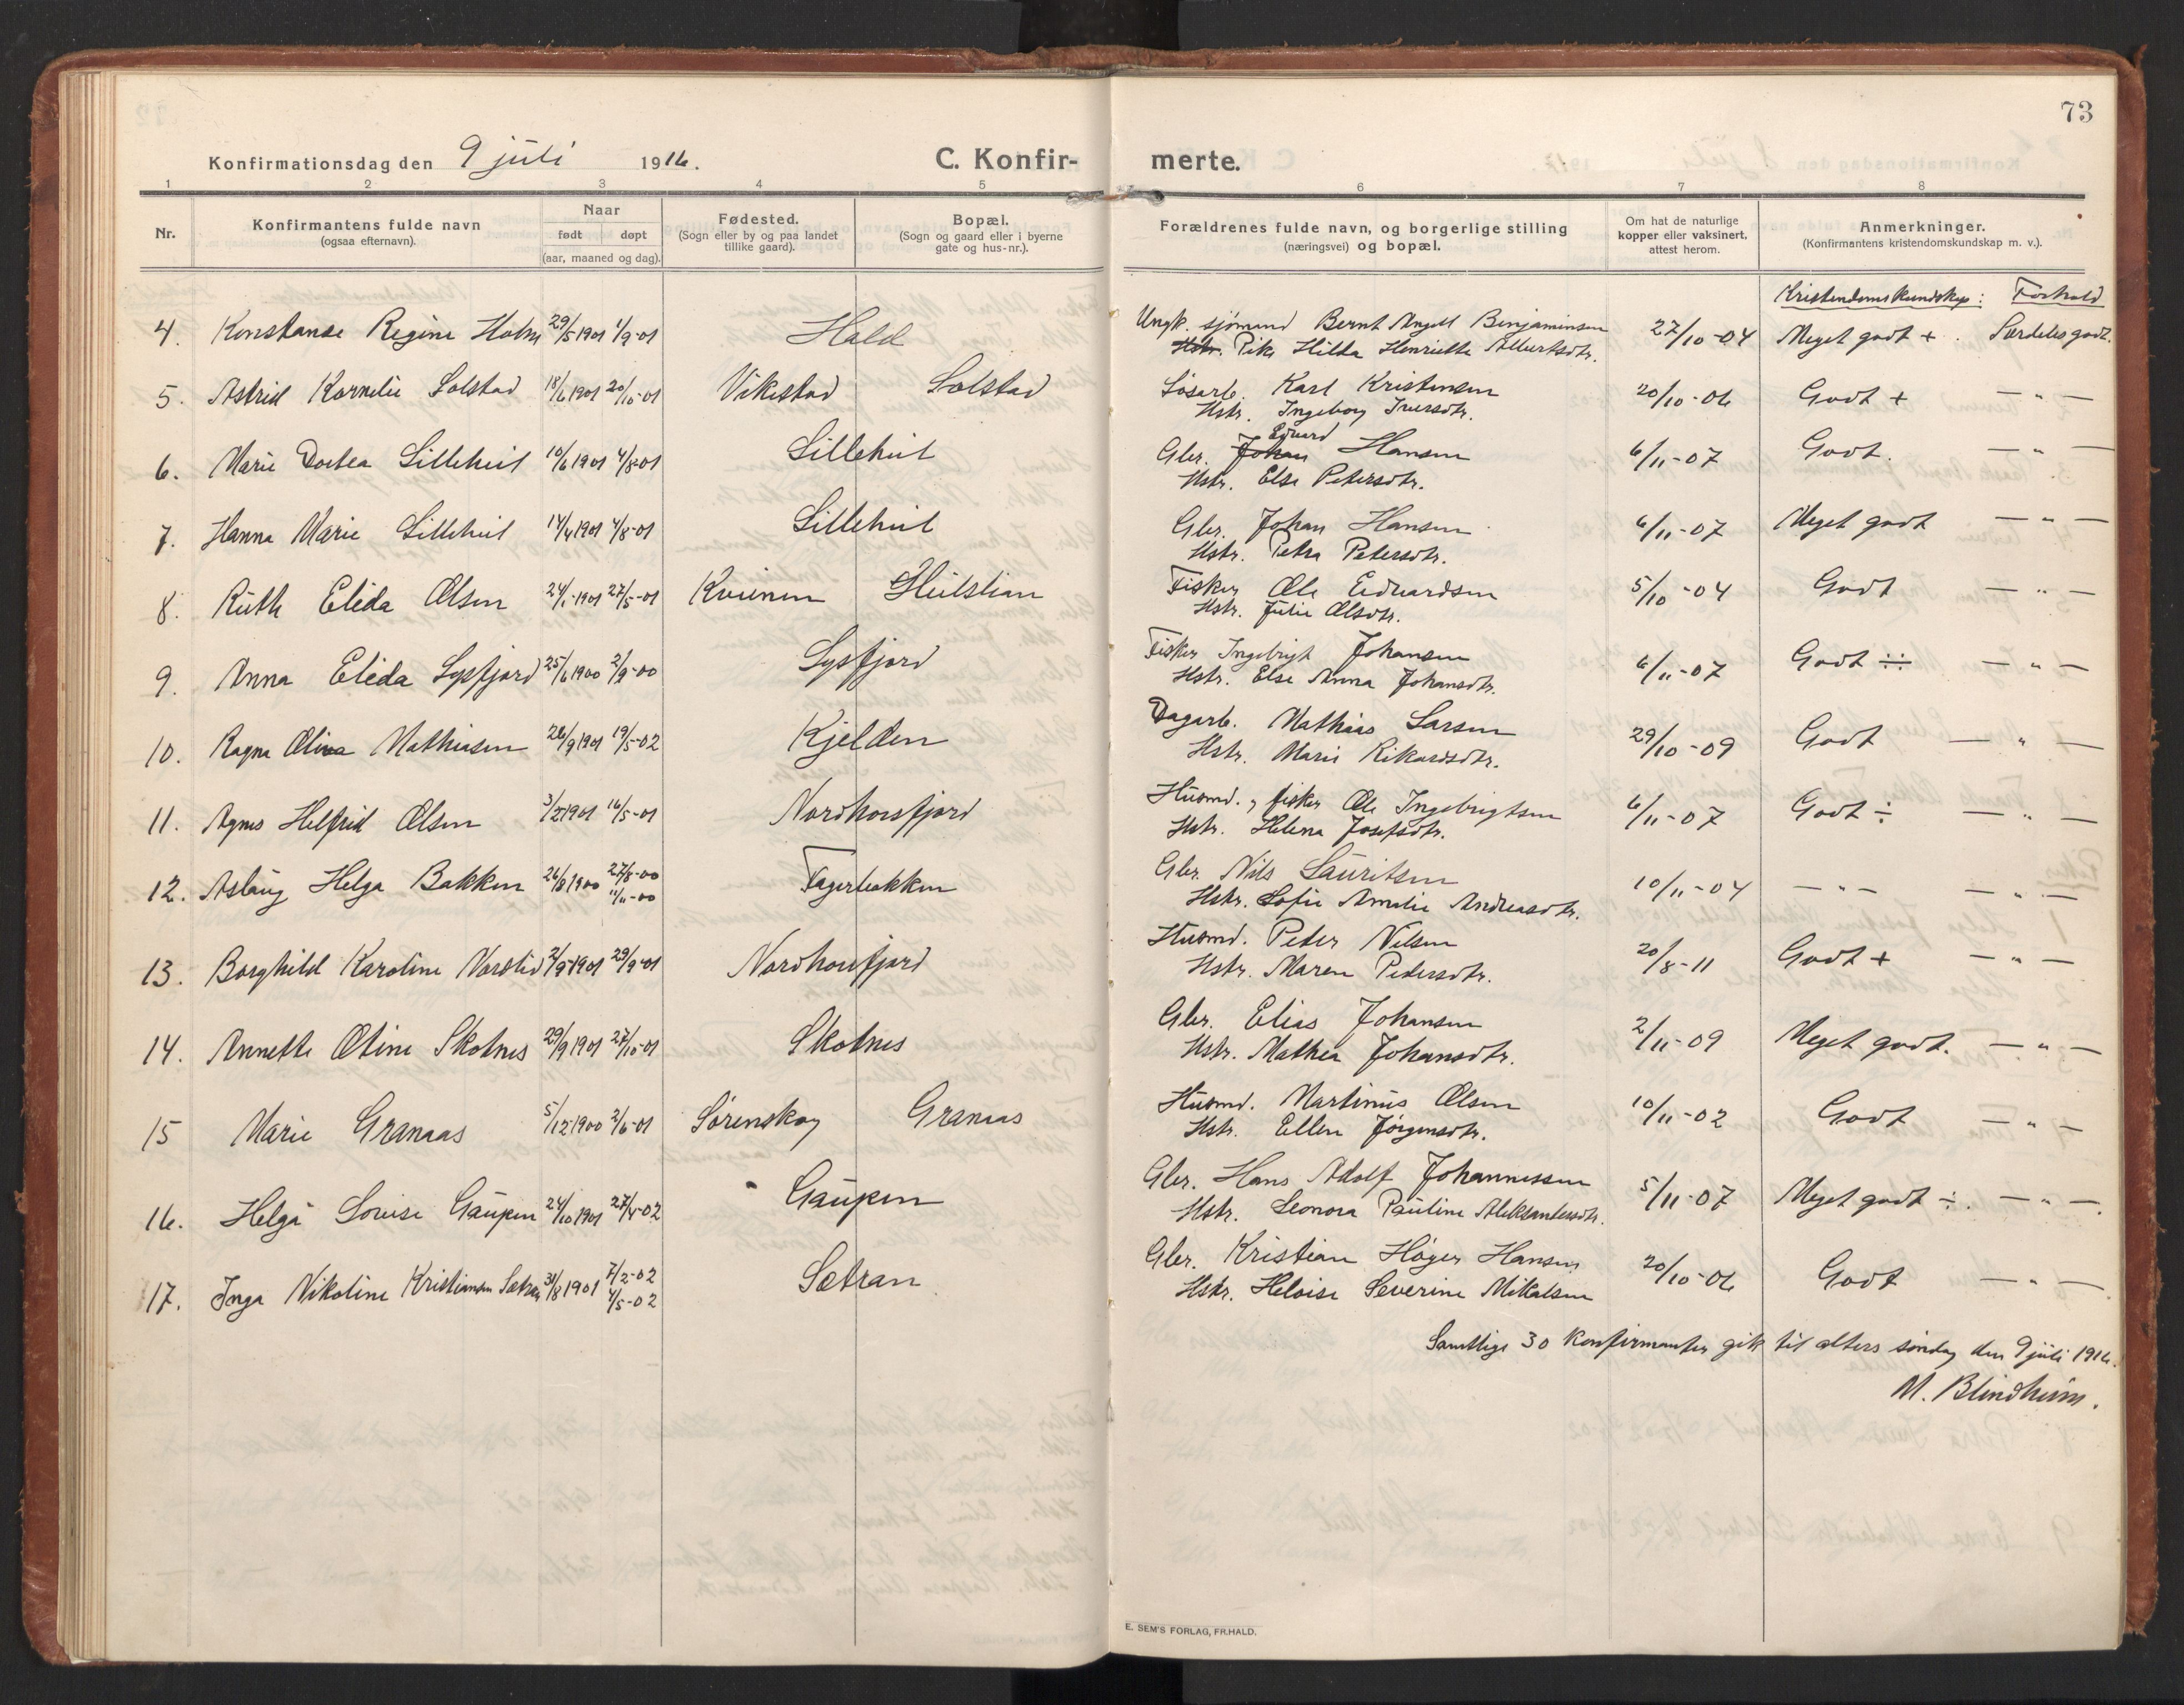 73
Konfirmationsdag den 9 juli 1916. C. Konfir- merte.
1 2 3 4 5 6 7 8
Nr.
Konfirmantens fulde navn
(ogsaa efternavn).
Naar
født døpt
(aar, maaned og dag).
Fødested.
(Sogn eller by og paa landet
tillike gaard).
Bopæl.
(Sogn og gaard eller i byerne
gate og hus-nr.).
Forældrenes fulde navn, og borgerlige stilling
(næringsvei) og bopæl.
Om hat de naturlige
kopper eller vaksinert,
attest herom.
Anmerkninger.
(Konfirmantens kristendomskundskap m. v.).
Kristendomskundskap: Forhold
4. Konstanse Regine Holm 29/5 1901 1/9-01 Hald Ungk. sjømand Bernt Angell Benjaminsen 27/10-04 Meget godt + Særdeles godt.
Hstr. Pike Hilda Henriette Albertsdtr.
5. Astrid Kornelie Solstad 18/6 1901 20/10-01 Vikestad Solstad Løsarb. Karl Kristensen 20/10-06 Godt + — " —
Hstr. Ingeborg Iversdtr.
6. Marie Dortea Lilleheil 10/6 1901 4/8-01 Lilleheil Gbr. Johan Eduard Hansen 6/11-07 Godt. — " —
Hstr. Else Petersdtr.
7. Hanna Marie Lilleheil 14/4 1901 4/8-01 Lilleheil Gbr. Johan Hansen 6/11-07 Meget godt — " —
Hstr. Petra Petersdtr.
8. Ruth Elida Olsen 24/1-1901 27/5-01 Kveinen Heilslian Fisker Ole Eduardsen 5/10-04 Godt — " —
Hstr. Julie Olsdtr.
9. Anna Elida Lysfjord 25/6 1900 2/9-00 Lysfjord Fisker Ingebrigt Johansen 6/11-07 Godt ÷÷ — " —
Hstr. Else Anna Johansdtr.
10. Ragna Oliva Mathiasen 26/9 1901 19/5-02 Kjelden Dagarb. Mathias Larsen 29/10-09 Godt — " —
Hstr. Maris Rikardsdtr.
11. Agnes Helfrid Olsen 3/2 1901 16/5-01 Nordhorsfjord Husmd. & fisker Ole Ingebrigtsen 6/11-07 Godt ÷ — " —
Hstr. Helena Josefsdtr.
12. Aslaug Helga Bakken 26/8 1900 27/8-00 Fagerbakken Gbr. Nils Lauritsen 10/11-04 — " — — " —
11/11-00 Hstr. Sofie Amalie Andreasdtr.
13. Borghild Karoline Norslid 2/9-1901 29/9-01 Nordhorsfjord Husmd. Peter Nilsen 20/8-11 Godt + — " —
Hstr. Maren Pedersdtr.
14. Annette Otine Skotnes 29/9 1901 27/10-01 Skotnes Gbr. Elias Johansen 2/11-09 Meget godt. — " —
Hstr. Mathea Johansdtr.
15 Marie Granaas 5/12 1900 2/6-01 Sørenskog Granaas Husmd. Martinus Olsen 10/11-02 Godt — " —
Hstr. Ellen Jørgensdtr.
16. Helga Lovise Gaupen 24/10 1901 27/4-02 Gaupen Gbr. Hans Adolf Johannessen 5/11-07 Meget godt ÷. — " —
Hstr. Leonora Pauline Aleksandersdtr.
17. Inga Nikoline Kristiansen Sætran 31/8 1901 7/2-02 Sætran Gbr. Kristian Høyer Hansen 20/10-06 Godt — " —
4/5-02 Hstr. Heloise Severine Mikalsen
Samtlige 30 konfirmanter gik til alters søndag den 9 juli 1916.
M. Blindheim.
E. SEM'S FORLAG, FR.HALD.